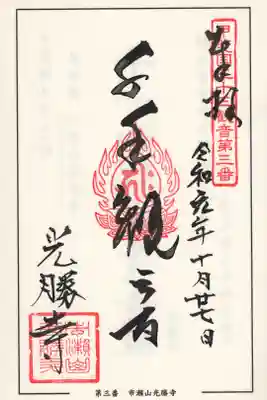 甲斐国三十三観音第三番
奉拝
令和元年十月廿七日
千手観音
光勝寺
第三番　市瀬山光勝寺